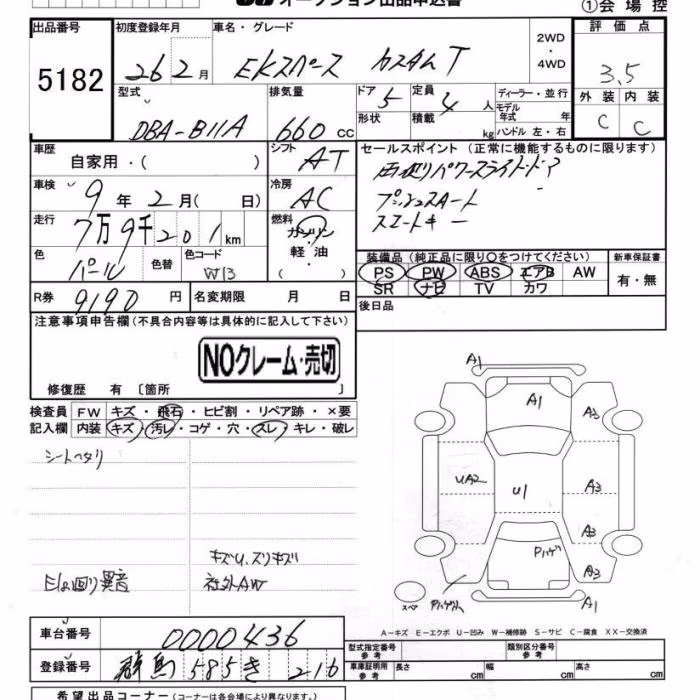 オークション出品申込書
①会場控
出品番号
5182
初度登録年月
26 2月
車名・グレード
EKスペース カスタムT
2WD
・
4WD
評価点
3.5
型式
DBA-B11A
排気量
660 cc
ドア 5
形状
定員 4 人
積載 kg
ディーラー・並行
モデル
年式 年
ハンドル 左・右
外装 内装
C C
車歴
自家用・( )
シフト
AT
車検
9年2月( 日)
冷房
AC
走行
7万9千201km
燃料
ガソリン
・
軽油
( )
色
パール
色替
色コード
W13
R券 9190 円
名変期限 月 日
セールスポイント(正常に機能するものに限ります)
両側パワースライドドア
プッシュスタート
スマートキー
装備品(純正品に限り○をつけてください)
PS PW ABS エアB AW
SR ナビ TV カワ
新車保証書
有・無
後日品
注意事項申告欄(不具合内容等は具体的に記入して下さい)
NOクレーム・売切
修復歴 有〔箇所 〕
検査員 FW キズ・飛石・ヒビ割・リペア跡・×要
記入欄 内装 キズ・汚レ・コゲ・穴・スレ・キレ・破レ
シートヘタリ
キズU、スリキズ
異音
社外AW
A1
A1
A3
UA2
U1
A3
A3
Pハゲ
A3
スペア
A1
A-キズ E-エクボ U-凹み W-補修跡 S-サビ C-腐食 XX-交換済
車台番号 0000436
登録番号 群馬 585 き 216
型式指定番号
参考
類別区分番号
参考
車庫証明用
参考
長さ cm
幅 cm
高さ cm
希望出品コーナー(コーナーは各会場により異なります。)